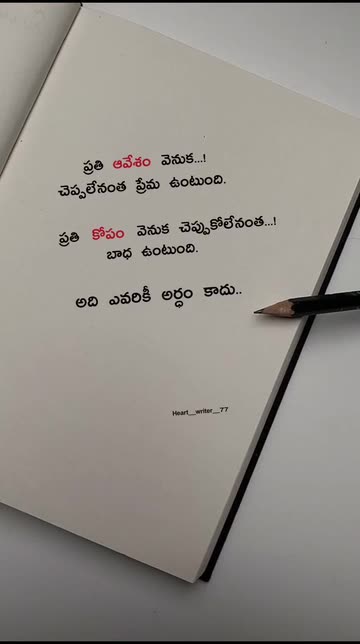 ప్రతి ఆవేశం వెనుక...!
చెప్పలేనంత ప్రేమ ఉంటుంది.
ప్రతి కోపం వెనుక చెప్పుకోలేనంత...!
బాధ ఉంటుంది.
అది ఎవరికీ అర్థం కాదు..
Heart__writer__77